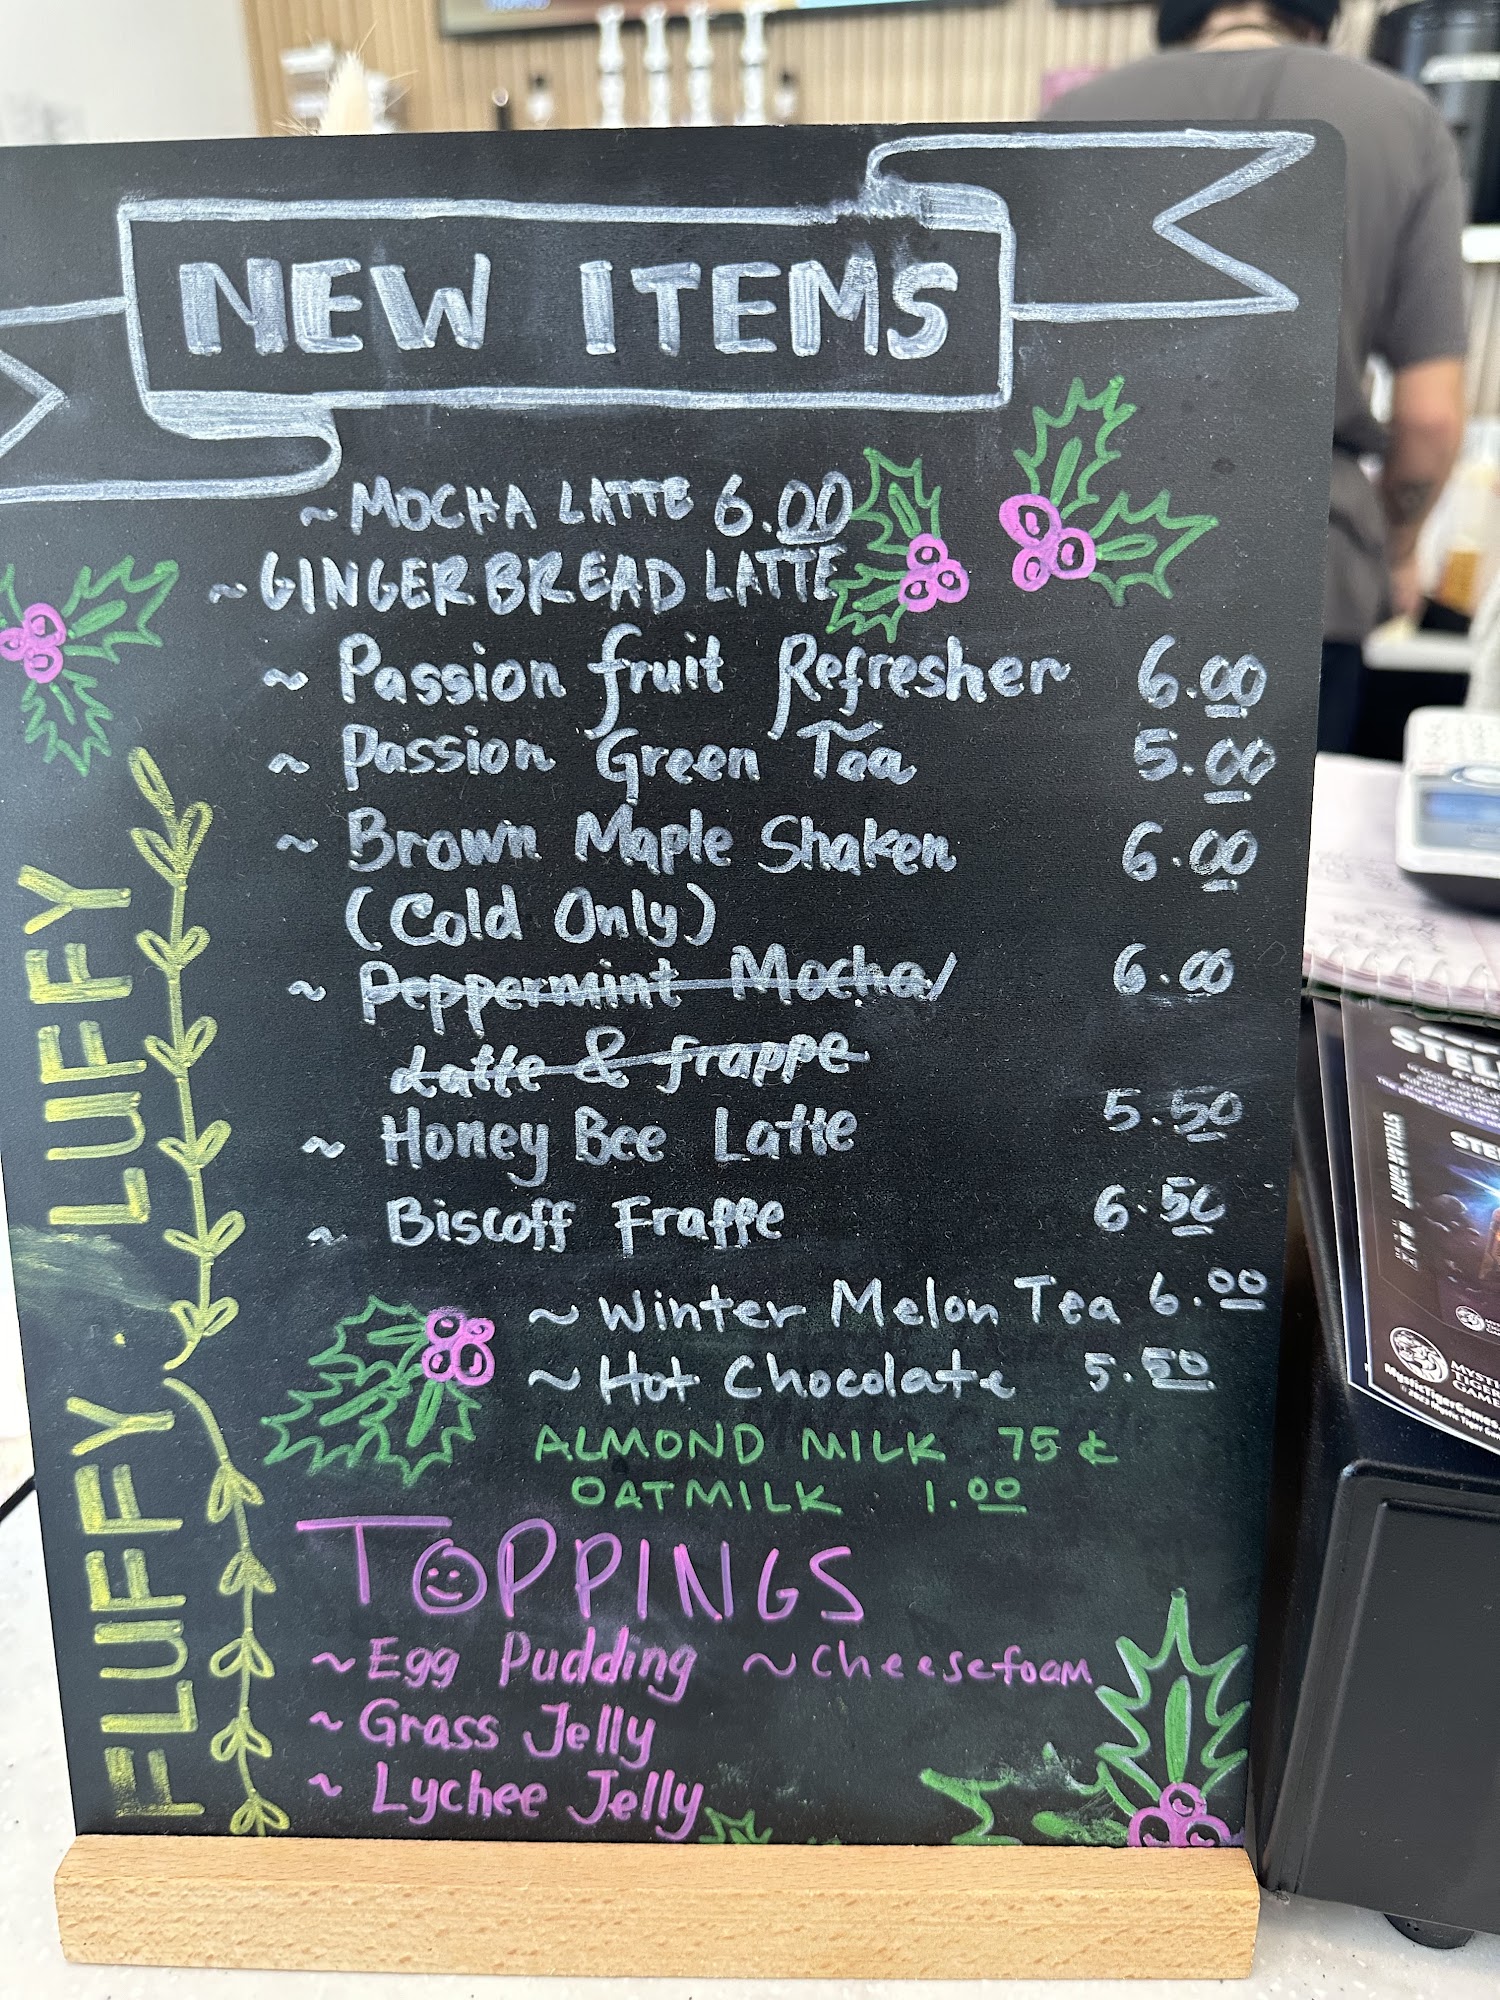 NEW ITEMS
~ MOCHA LATTE 6.00
~ GINGERBREAD LATTE
~ Passion fruit Refresher 6.00
~ Passion Green Tea 5.00
~ Brown Maple Shaken 6.00
(Cold Only)
~ Peppermint Mocha/ 6.00
Latte & frappe
~ Honey Bee Latte 5.50
~ Biscoff Fraffe 6.50
~ Winter Melon Tea 6.00
~ Hot Chocolate 5.50
ALMOND MILK 75¢
OATMILK 1.00
TOPPINGS
~ Egg Pudding ~ Cheesefoam
~ Grass Jelly
~ Lychee Jelly
FLUFFY LUFFY
STELLAR DRIFT
MYSTIC
TIGER
GAMES
MysticTigerGames.